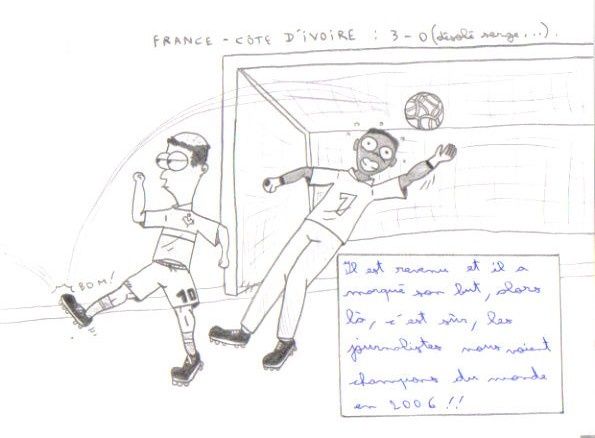 FRANCE - CÔTE D'IVOIRE : 3 - 0 (désolé serge...).
BOM!
7
10
Il est revenu et il a
marqué son but, alors
là, c'est sûr, les
journalistes nous voient
champions du monde
en 2006 !!